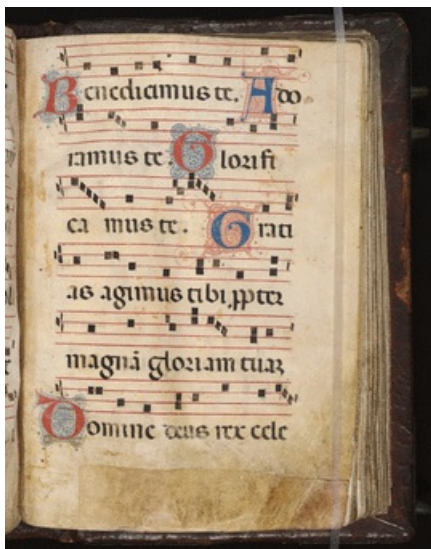 Benedicamus te. Ado
ramus te. Glorifi
ca mus te. Grati
as agimus tibi. ꝓpter
magnā gloriam tuaꝫ
Domine deus rex cele